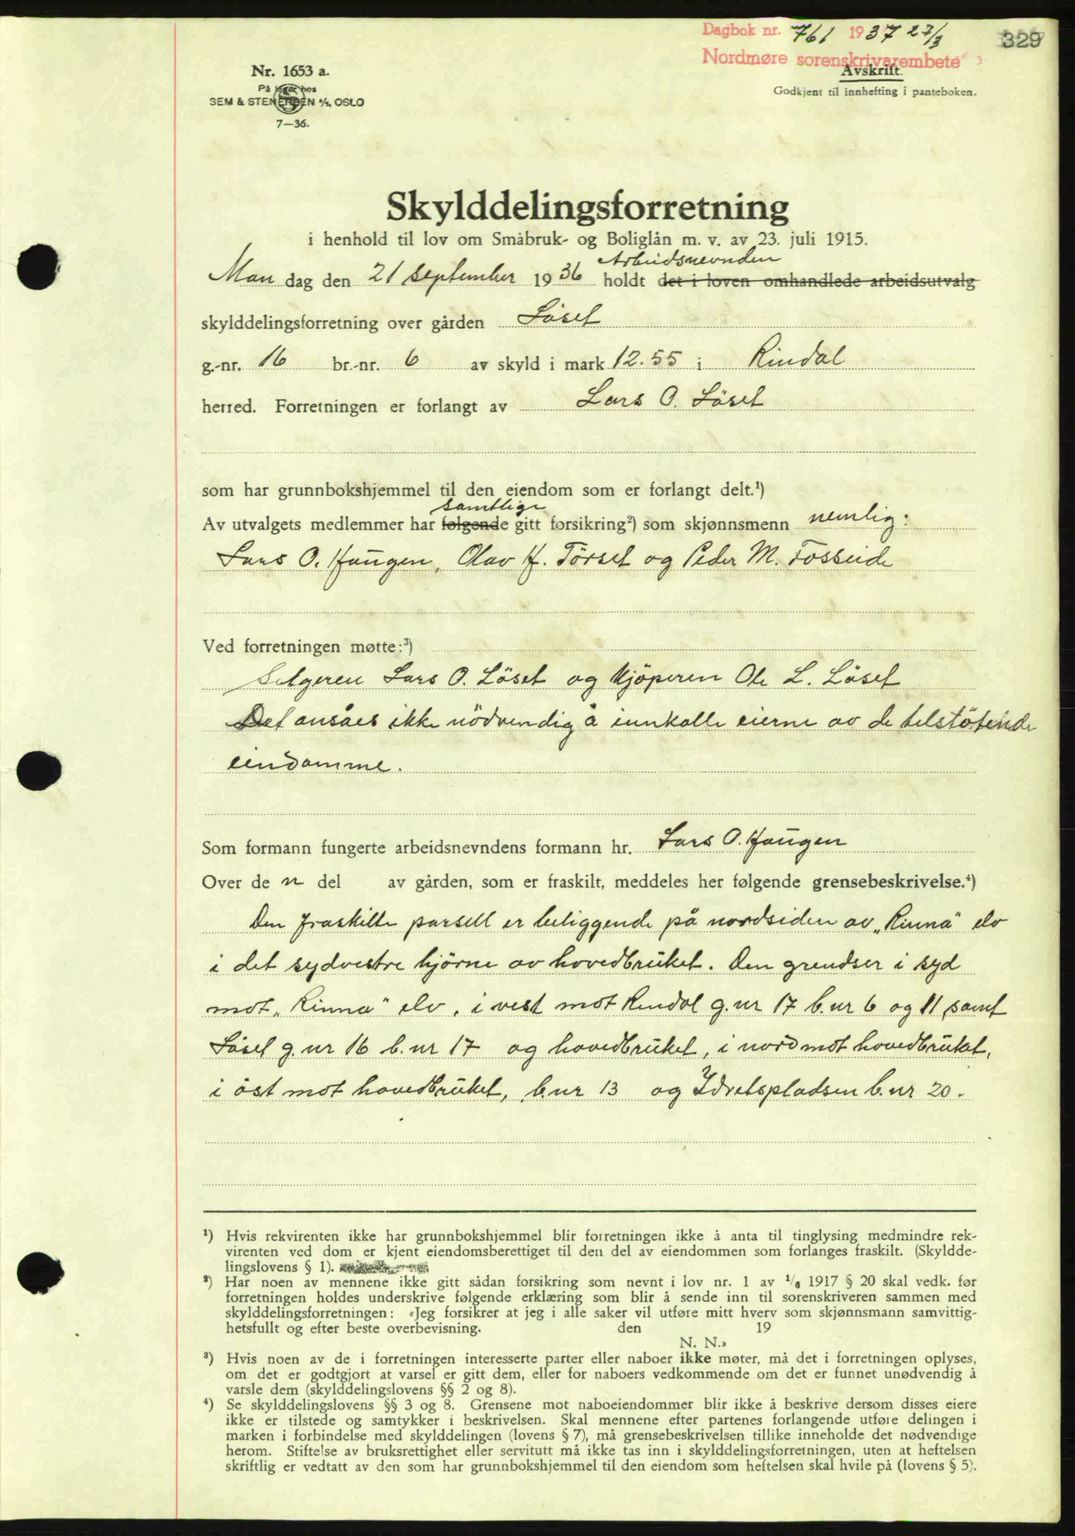 Dagbok nr. 761 1937 27/3
Nordmøre sorenskrivarembete
329
Nr. 1653 a.
På lager hos
SEM & STENERSEN A/S, OSLO
7—36.
Avskrift.
Godkjent til innhefting i panteboken.
Skylddelingsforretning
i henhold til lov om Småbruk- og Boliglån m. v. av 23. juli 1915.
Arbeidsnevnden
Man dag den 21 september 1936 holdt det i loven omhandlede arbeidsutvalg
skylddelingsforretning over gården Löset
g.-nr. 16 br.-nr. 6 av skyld i mark 12.55 i Rindal
herred. Forretningen er forlangt av Lars O. Löset
som har grunnbokshjemmel til den eiendom som er forlangt delt.¹)
samtlige
Av utvalgets medlemmer har følgende gitt forsikring²) som skjønnsmenn nemlig:
Lars O. Haugen, Olav H. Törset og Peder M. Fosseide
Ved forretningen møtte:³)
Selgeren Lars O. Löset og kjöperen Ole L. Löset
Det ansåes ikke nödvendig å innkalle eierne av de tilstötende
eiendomme.
Som formann fungerte arbeidsnevndens formann hr. Lars O. Haugen
Over de n del av gården, som er fraskilt, meddeles her følgende grensebeskrivelse.⁴)
Den fraskilte parsell er beliggende på nordsiden av „Rinna" elv
i det sydvestre hjörne av hovedbruket. Den grendser i syd
mot „Rinna" elv, i vest mot Rindal g. nr 17 b. nr 6 og 11 samt
Löset g. nr 16 b. nr 17 og hovedbruket, i nord mot hovedbruket,
i öst mot hovedbruket, b. nr 13 og Idretspladsen b. nr 20.
¹) Hvis rekvirenten ikke har grunnbokshjemmel blir forretningen ikke å anta til tinglysing medmindre rek-
virenten ved dom er kjent eiendomsberettiget til den del av eiendommen som forlanges fraskilt. (Skyldde-
lingslovens § 1).
²) Har noen av mennene ikke gitt sådan forsikring som nevnt i lov nr. 1 av 1/6 1917 § 20 skal vedk. før
forretningen holdes underskrive følgende erklæring som blir å sende inn til sorenskriveren sammen med
skylddelingsforretningen: «Jeg forsikrer at jeg i alle saker vil utføre mitt hverv som skjønnsmann samvittig-
hetsfullt og efter beste overbevisning. den 19
N. N.»
³) Hvis noen av de i forretningen interesserte parter eller naboer ikke møter, må det i forretningen oplyses,
om det er godtgjort at varsel er gitt dem, eller for naboers vedkommende om det er funnet unødvendig å
varsle dem (skylddelingslovens §§ 2 og 8).
⁴) Se skylddelingslovens §§ 3 og 8. Grensene mot naboeiendommer blir ikke å beskrive dersom disses eiere
ikke er tilstede og samtykker i beskrivelsen. Skal mennene efter partenes forlangende utføre delingen i
marken i forbindelse med skylddelingen (lovens § 7), må grensebeskrivelsen tillike inneholde det nødvendige
herom. Stiftelse av bruksrettighet eller servitutt må ikke tas inn i skylddelingsforretningen, uten at heftelsen
skriftlig er vedtatt av den som har grunnbokshjemmel til den eiendom som heftelsen skal hvile på (lovens § 5).